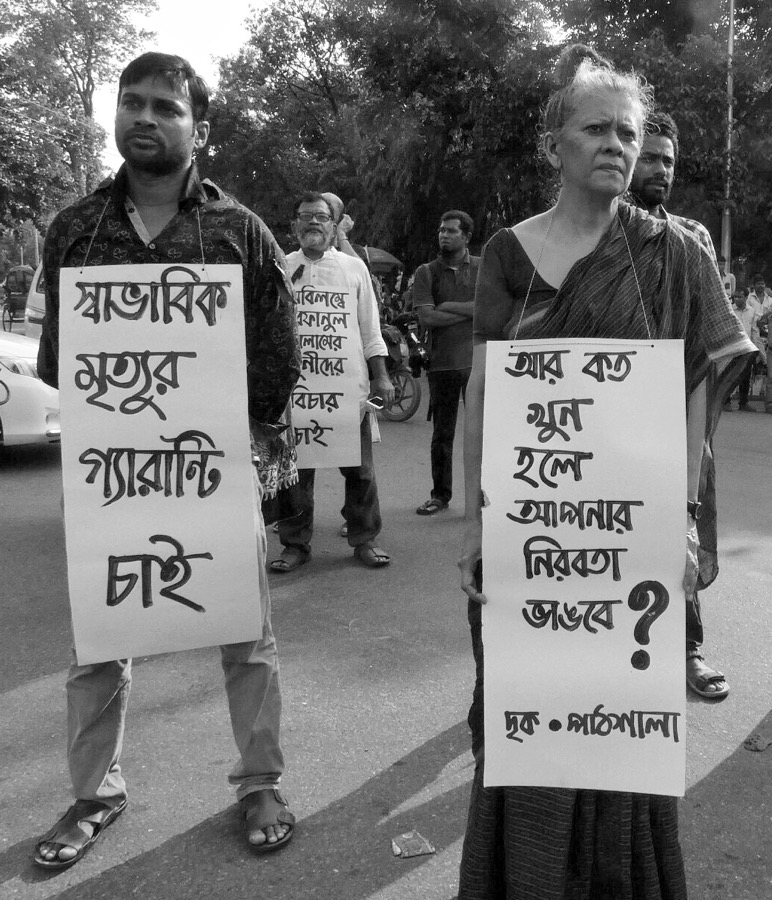 স্বাভাবিক
মৃত্যুর
গ্যারান্টি
চাই
বিলম্বে
ফানুল
লামের
নীদের
বিচার
চাই
আর কত
খুন
হলে
আপনার
নিরবতা
ভাঙবে ?
দৃক • পাঠশালা